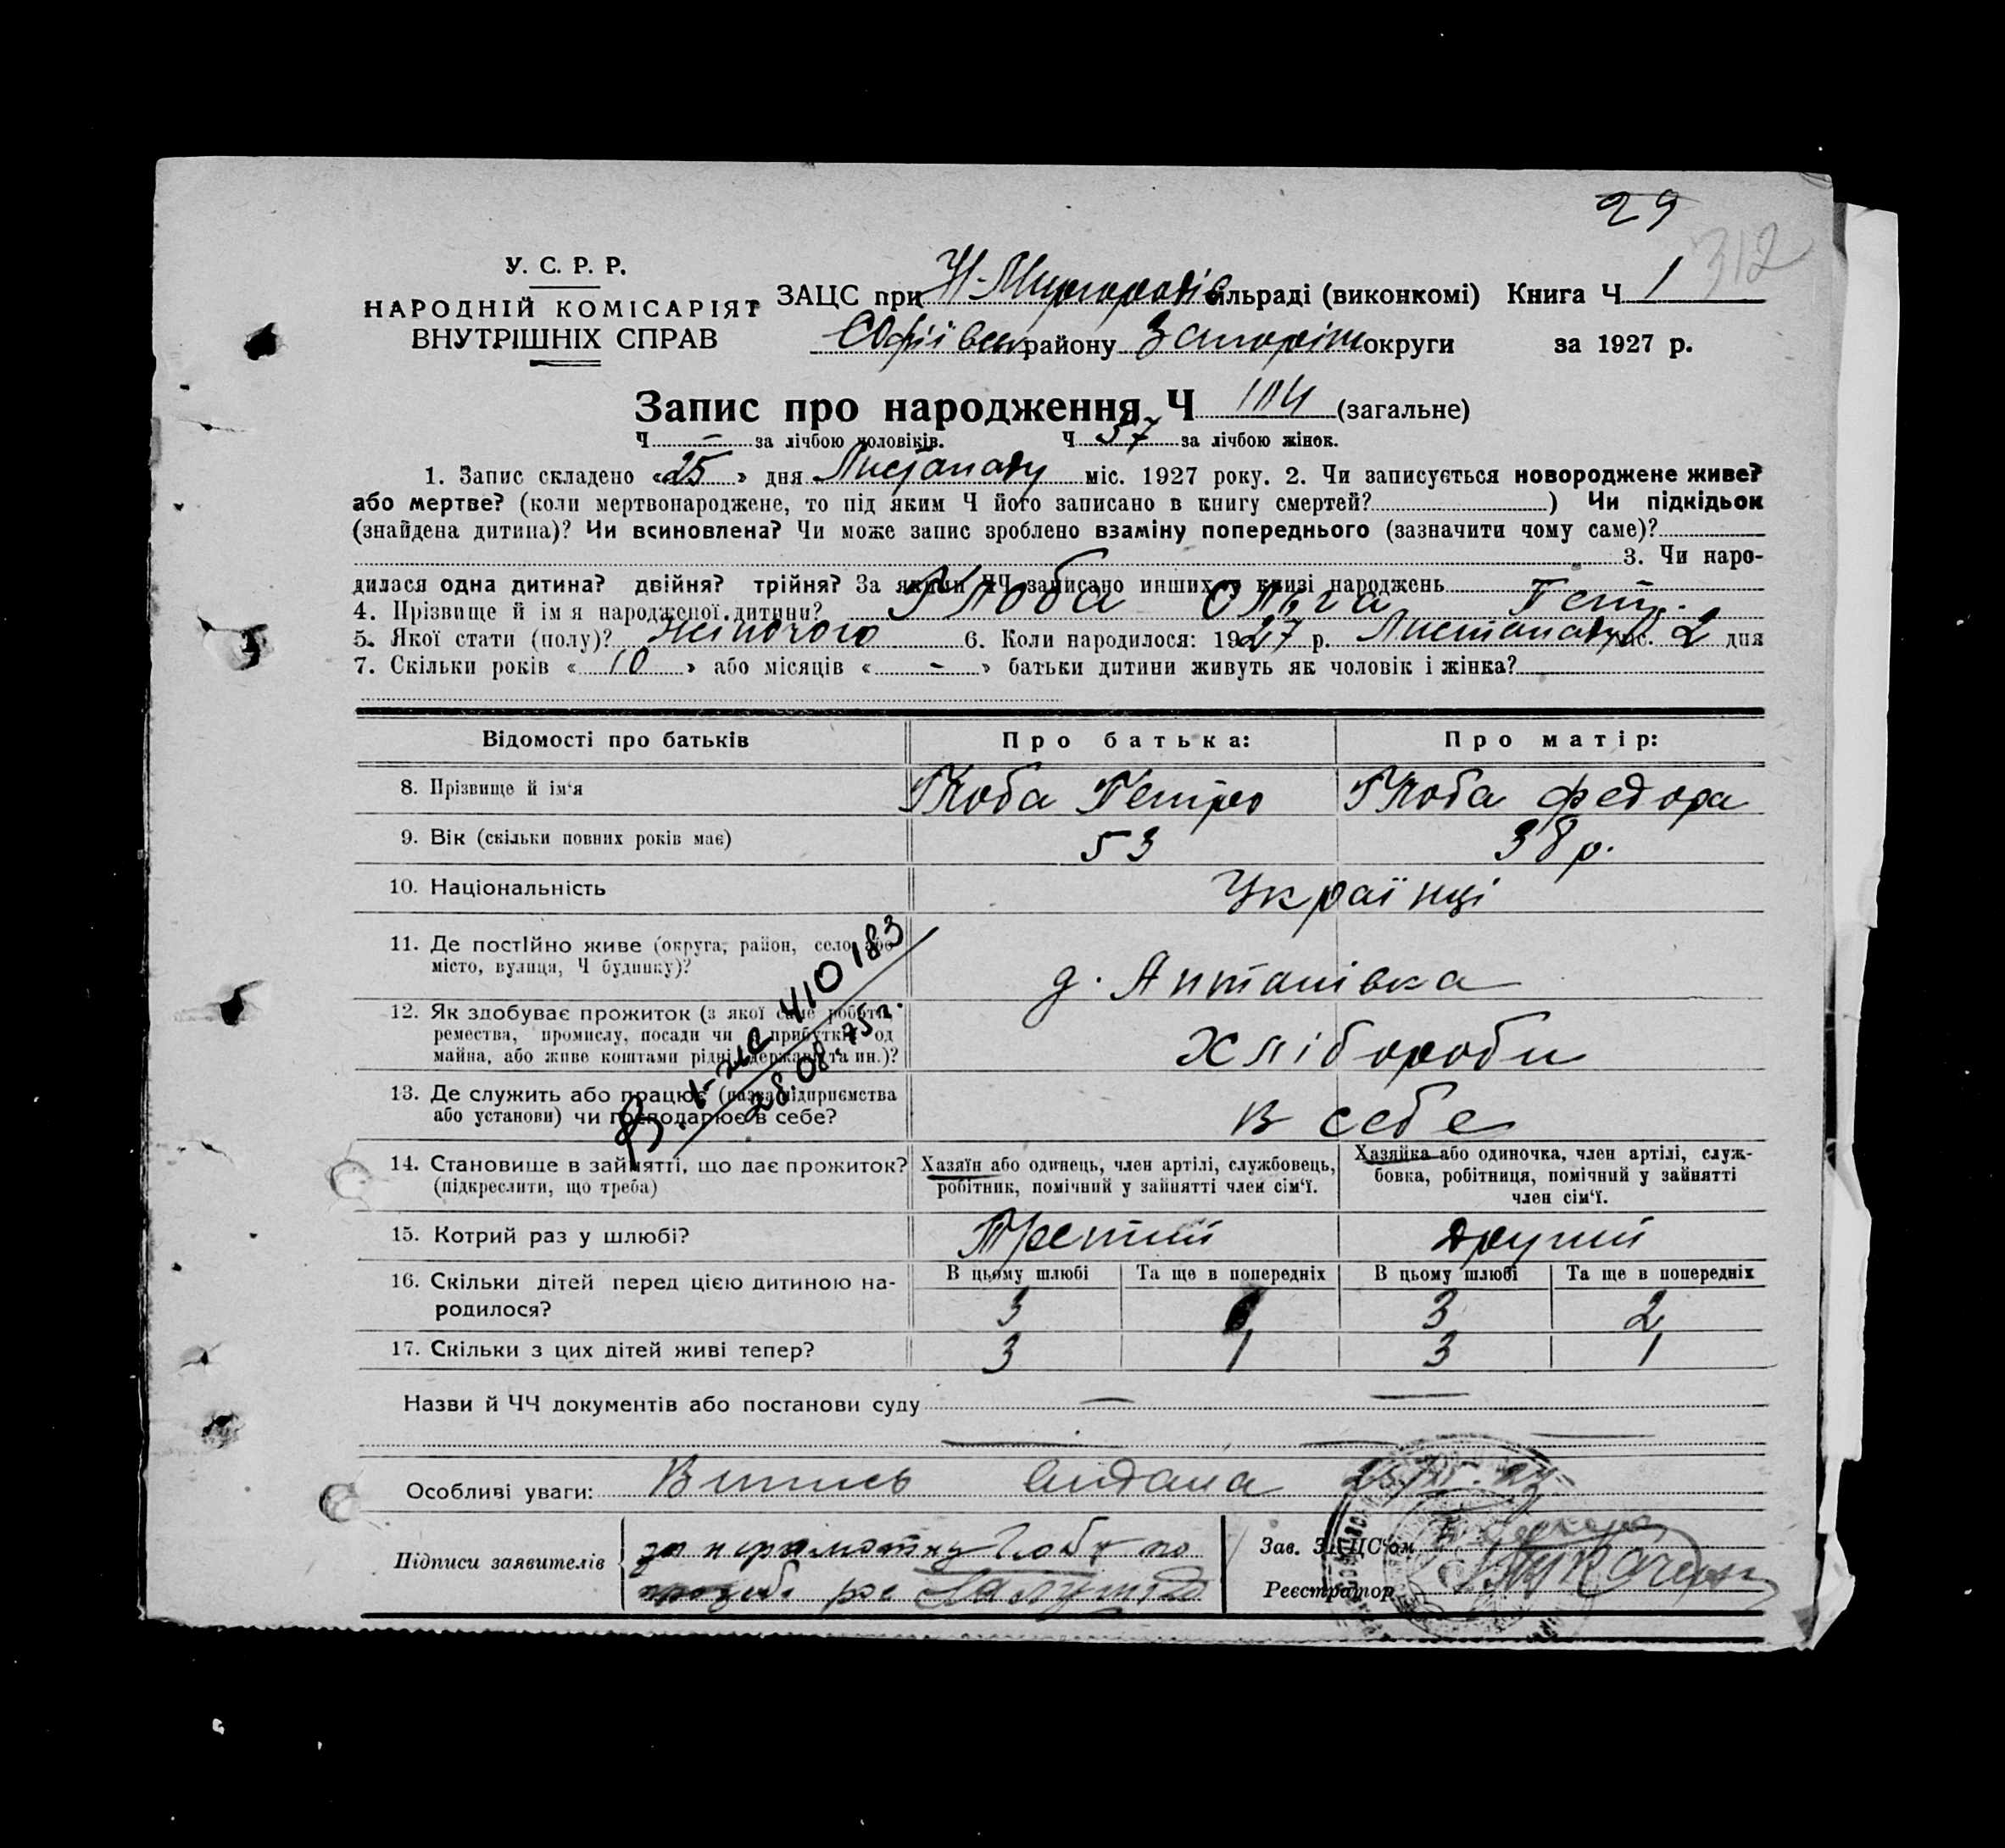 29
312
У. С. Р. Р.
НАРОДНІЙ КОМІСАРІЯТ
ВНУТРІШНІХ СПРАВ
ЗАЦС при Н-Миргородів сільраді (виконкомі) Книга Ч 1
Софіївськ району Запоріж округи за 1927 р.
Запис про народження Ч 104 (загальне)
Ч - за лічбою чоловіків. Ч 57 за лічбою жінок.
1. Запис складено «25» дня Листопаду міс. 1927 року. 2. Чи записується новороджене живе?
або мертве? (коли мертвонароджене, то під яким Ч його записано в книгу смертей? ) Чи підкідьок
(знайдена дитина)? Чи всиновлена? Чи може запис зроблено взаміну попереднього (зазначити чому саме)?
3. Чи наро-
дилася одна дитина? двійня? трійня? За якими ЧЧ записано инших у книзі народжень
4. Прізвище й ім я народженої дитини? Глоба Ольга Петр.
5. Якої стати (полу)? жіночого 6. Коли народилося: 1927 р. Листопаду міс. 2 дня
7. Скільки років « 10 » або місяців « - » батьки дитини живуть як чоловік і жінка?
Відомості про батьків Про батька: Про матір:
8. Прізвище й ім'я Глоба Петро Глоба Федора
9. Вік (скільки повних років має) 53 38 р.
10. Національність Українці
11. Де постійно живе (округа, район, село або
місто, вулиця, Ч будинку)? д. Антанівка
12. Як здобуває прожиток (з якої саме роботи,
ремества, промислу, посади чи з прибутків од
майна, або живе коштами рідні, держави та ин.)? Хлібороби
13. Де служить або працює (назва підприємства
або установи) чи господарює в себе? в себе
410183
28.08.75 г.
14. Становище в зайнятті, що дає прожиток?
(підкреслити, що треба)
Хазяїн або одинець, член артілі, службовець,
робітник, помічний у зайнятті член сім'ї.
Хазяйка або одиночка, член артілі, служ-
бовка, робітниця, помічний у зайнятті
член сім'ї.
15. Котрий раз у шлюбі? Третий другий
16. Скільки дітей перед цією дитиною на-
родилося?
В цьому шлюбі Та ще в попередніх В цьому шлюбі Та ще в попередніх
3 3 2
17. Скільки з цих дітей живі тепер? 3 1 3 1
Назви й ЧЧ документів або постанови суду
Особливі уваги: Випись видана
Підписи заявителів за неграмотну Глобу по
рос
Зав. ЗАЦС'ом
Реєстратор